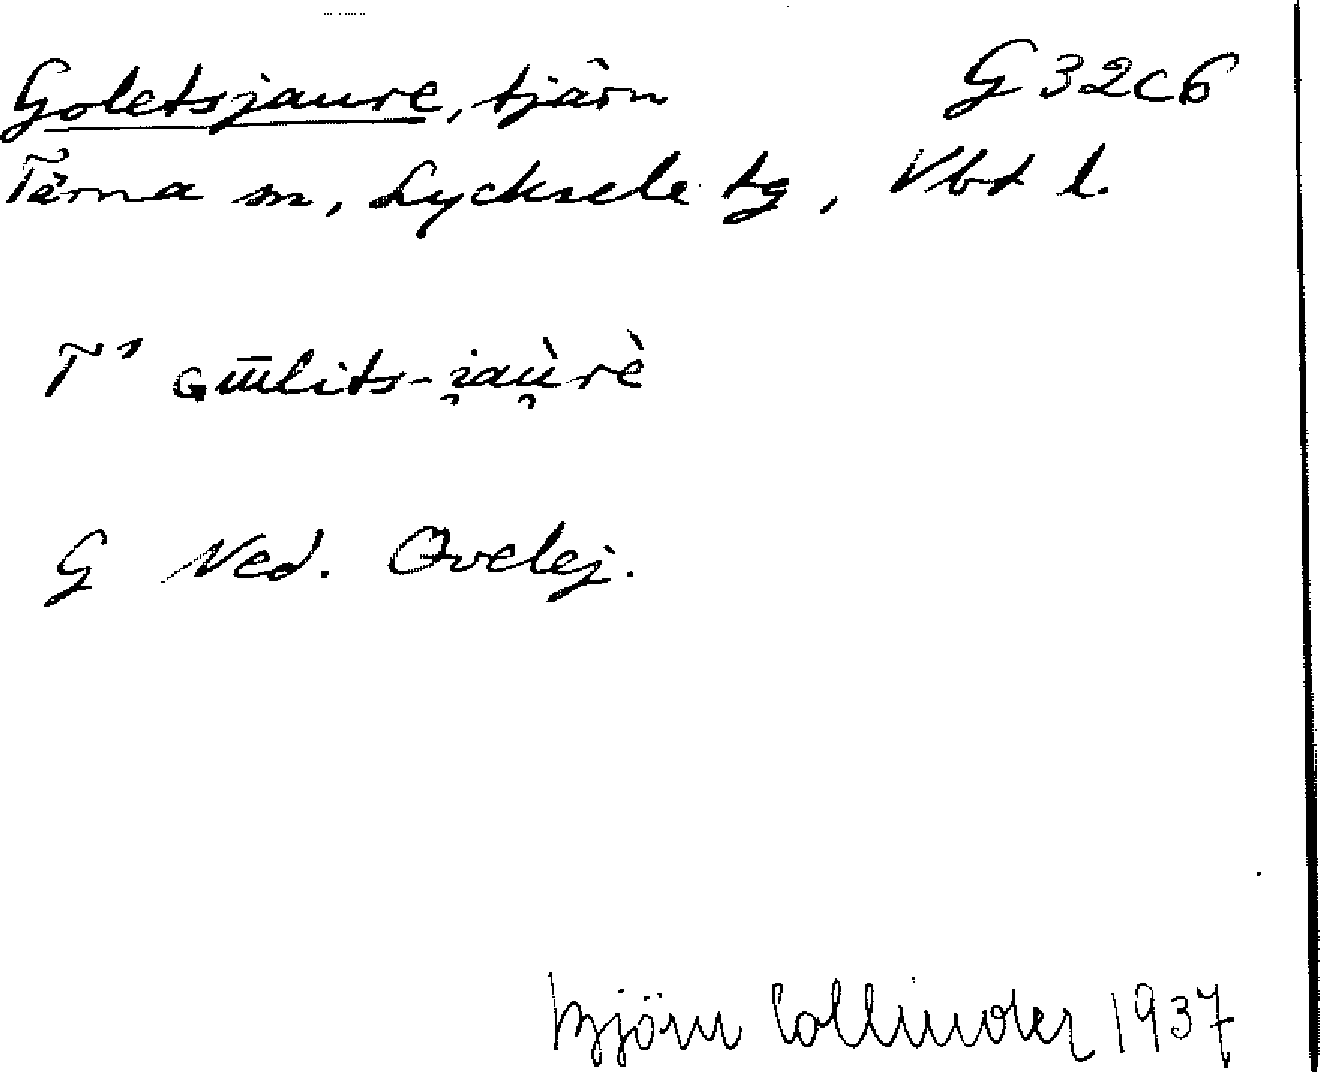 Goletsjaure, tjärn G 32c6
Tärna sn, Lycksele tg, Vbt l.
G Ned. Qvelej.
Björn Collinder 1937